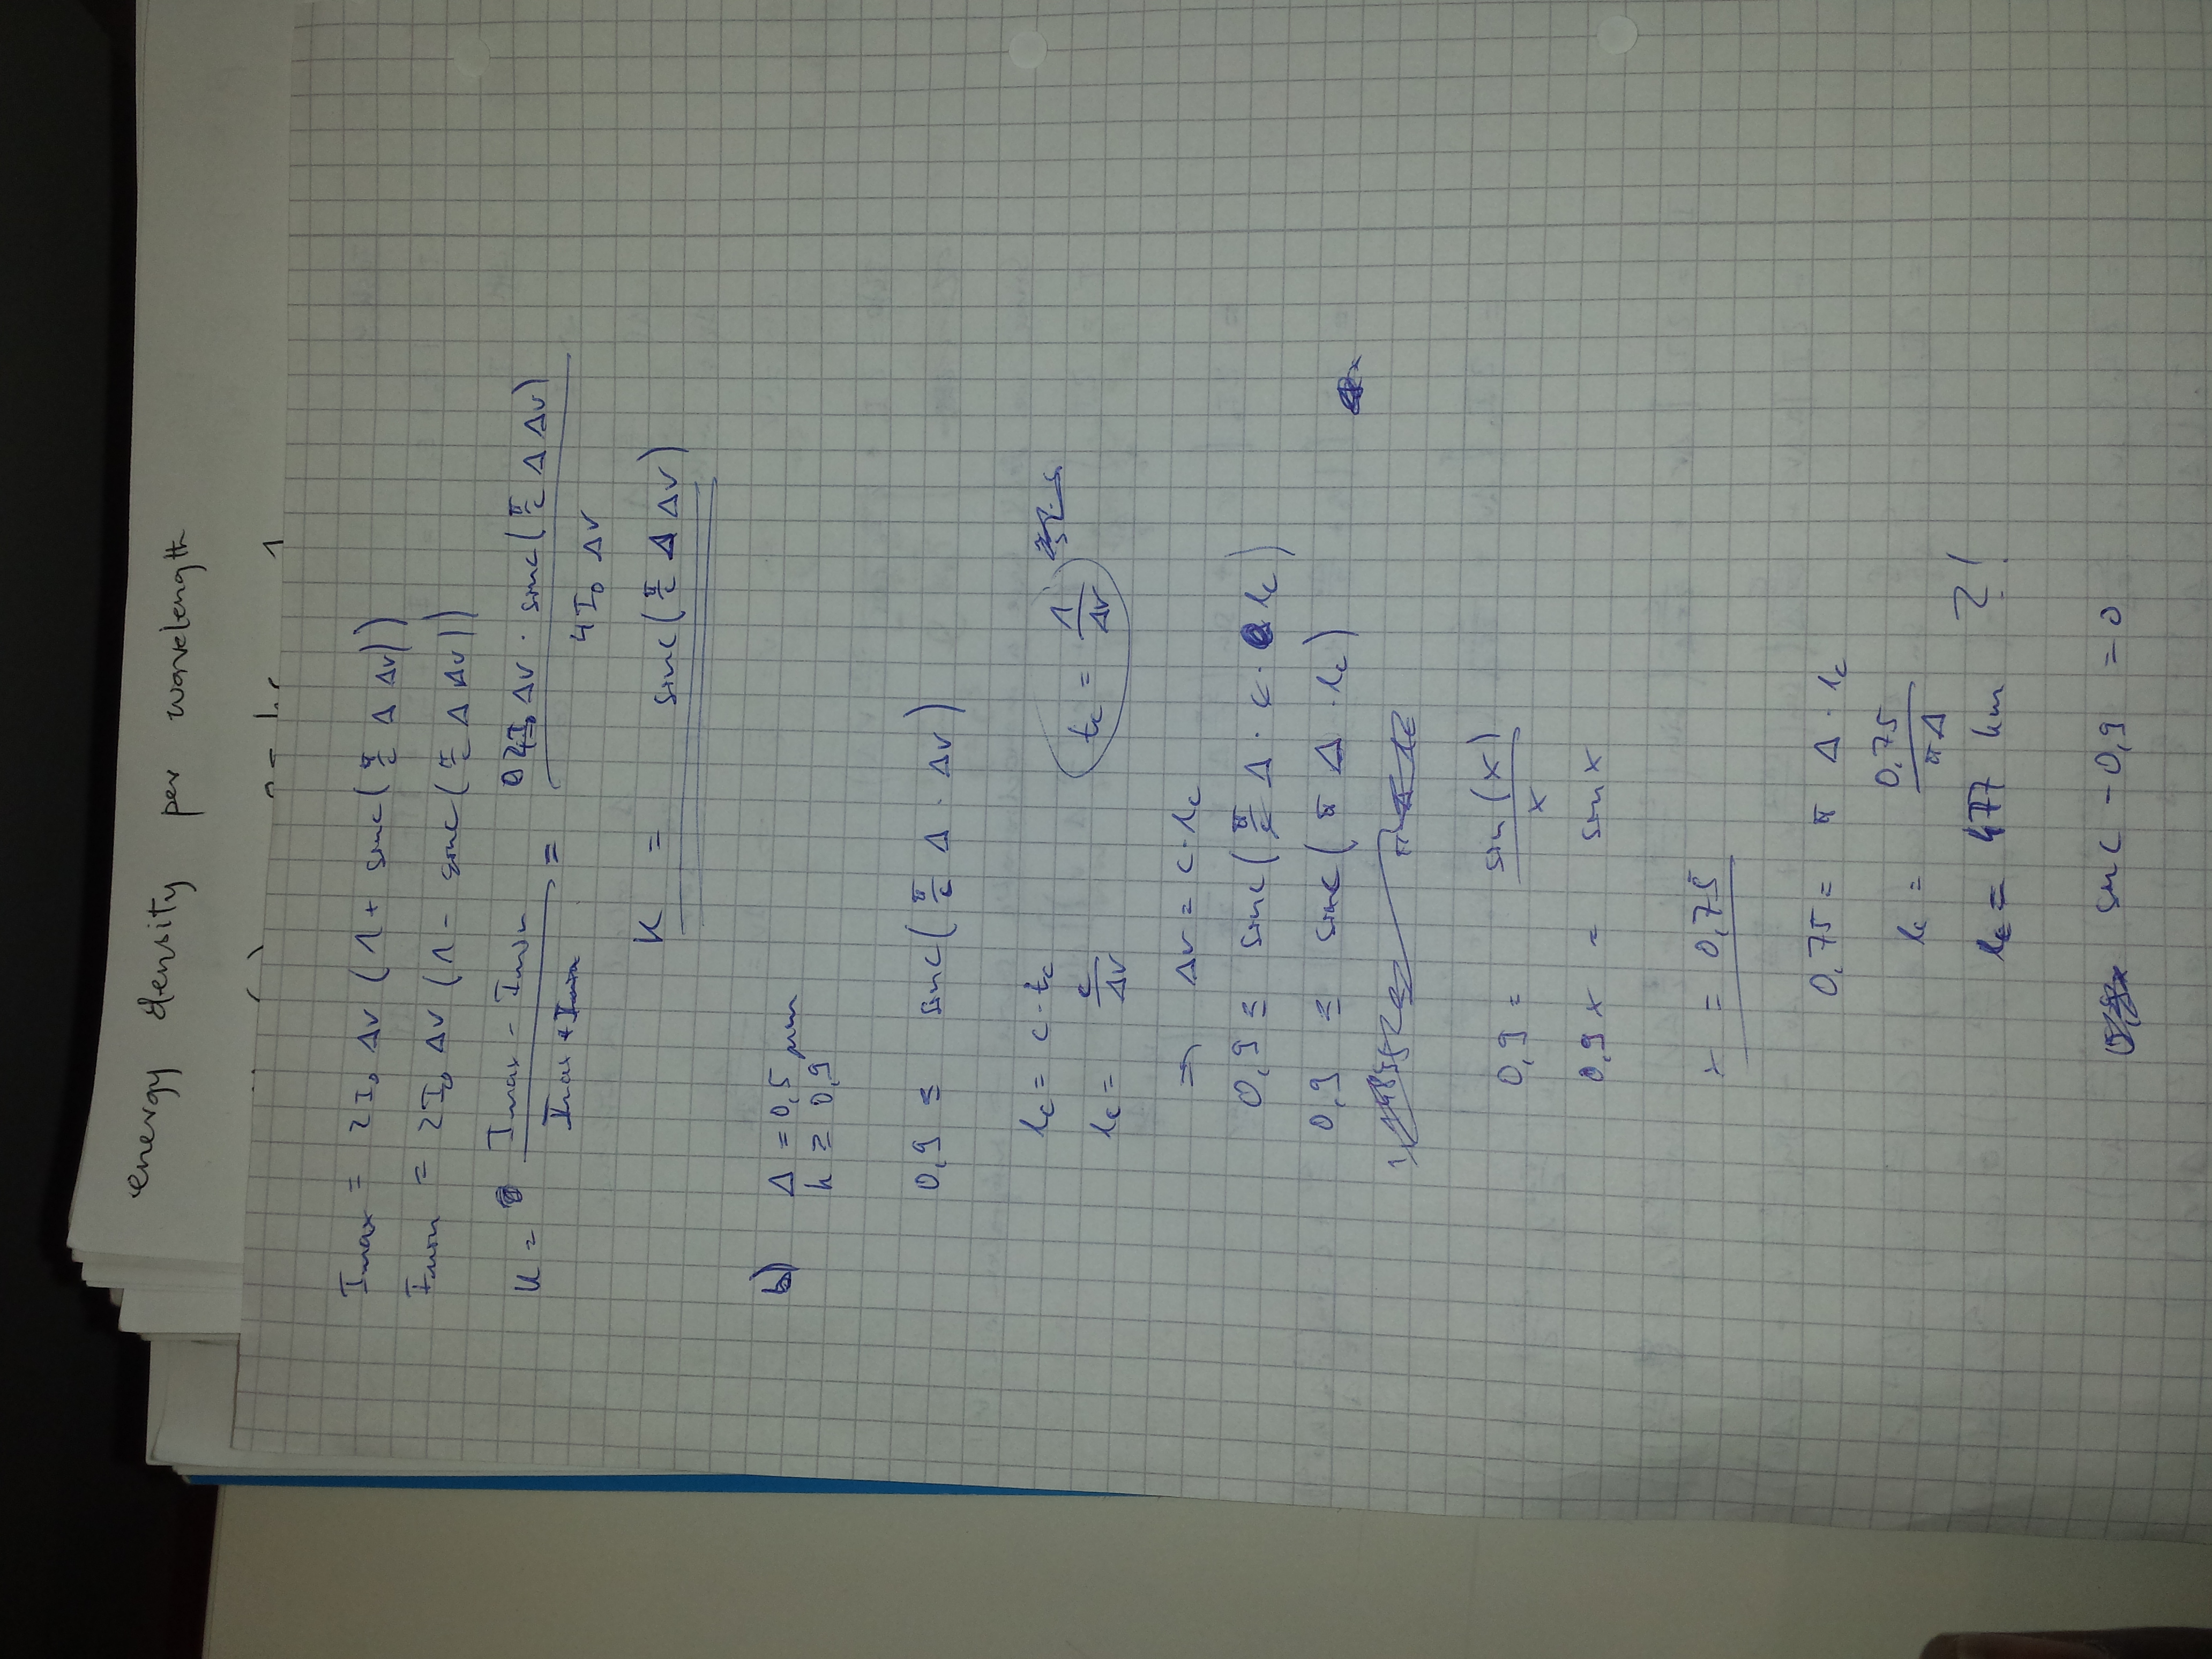 energy density per wavelength
Imax = 2I₀ Δν (1 + sinc(π/c Δ Δν))
Imin = 2I₀ Δν (1 - sinc(π/c Δ Δν))
K = (Imax - Imin)/(Imax + Imin) = (4I₀ Δν · sinc(π/c Δ Δν))/(4I₀ Δν)
K = sinc(π/c Δ Δν)
b) Δ = 0,5 μm
K ≥ 0,9
0,9 ≤ sinc(π/c Δ · Δν)
lc = c · tc
tc = 1/Δν
lc = c/Δν
⇒ Δν = c · lc
0,9 ≤ sinc(π/c Δ · c · lc)
0,9 ≤ sinc(π Δ · lc)
0,9 = sin(x)/x
0,9x = sin x
x = 0,75
0,75 = π Δ · lc
lc = 0,75/(πΔ)
lc = 477 km ?!
sinc - 0,9 = 0